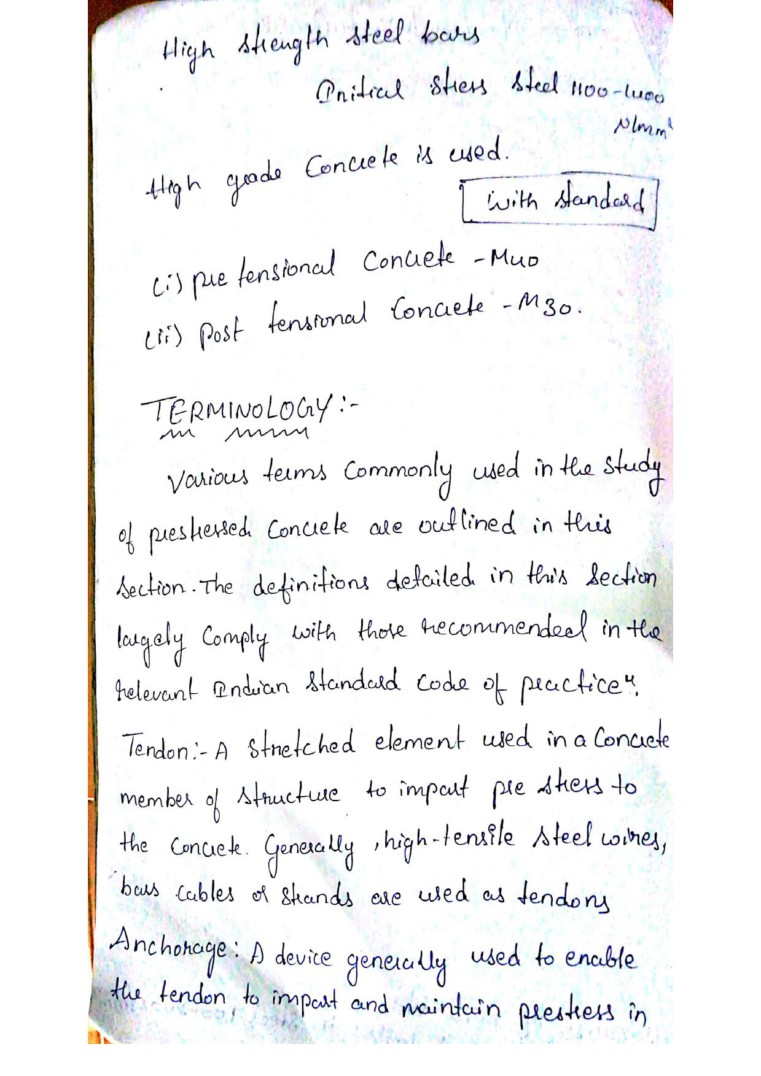 High strength steel bars
Initial stress steel 1100-1400
N/mm²
High grade Concrete is used.
with standard
(i) pre tensional Concrete - M40
(ii) Post tensional Concrete - M30.
TERMINOLOGY:-
Various terms Commonly used in the study
of prestressed Concrete are outlined in this
Section. The definitions detailed in this Section
largely Comply with those recommended in the
relevant Indian Standard Code of practice".
Tendon:- A Stretched element used in a Concrete
member of structure to impart pre stress to
the Concrete. Generally, high-tensile steel wires,
bars cables or strands are used as tendons
Anchorage: A device generally used to enable
the tendon, to impart and maintain prestress in